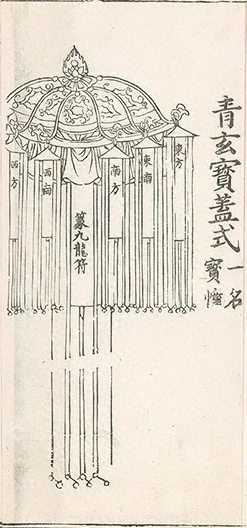 青玄寶蓋式
一名
寶幢
東方
東南
南方
篆九龍符
西南
西方